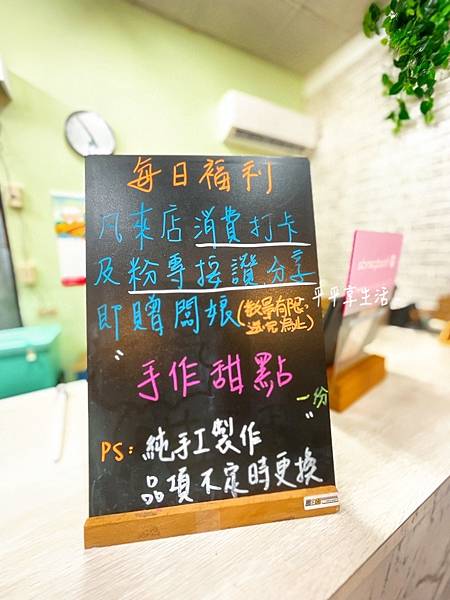 每日福利
凡來店消費打卡
及粉專按讚、分享
即贈闆娘(數量有限,送完為止)
"手作甜點"一份
PS:純手工製作
品項不定時更換
平平享生活
foodpanda